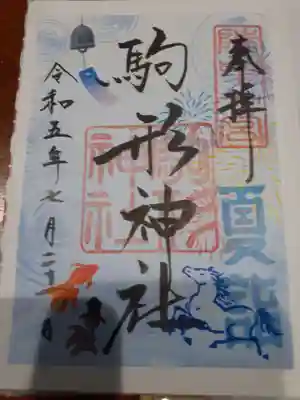 奉拝
駒形神社
令和五年七月二十
夏詣